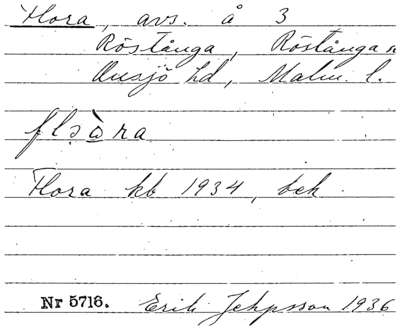 Flora, avs. å 3
Röstånga, Röstånga
Onsjö hd, Malm. l.
Flora kb 1934, bek.
Nr 5716. Erik Jeppsson 1936